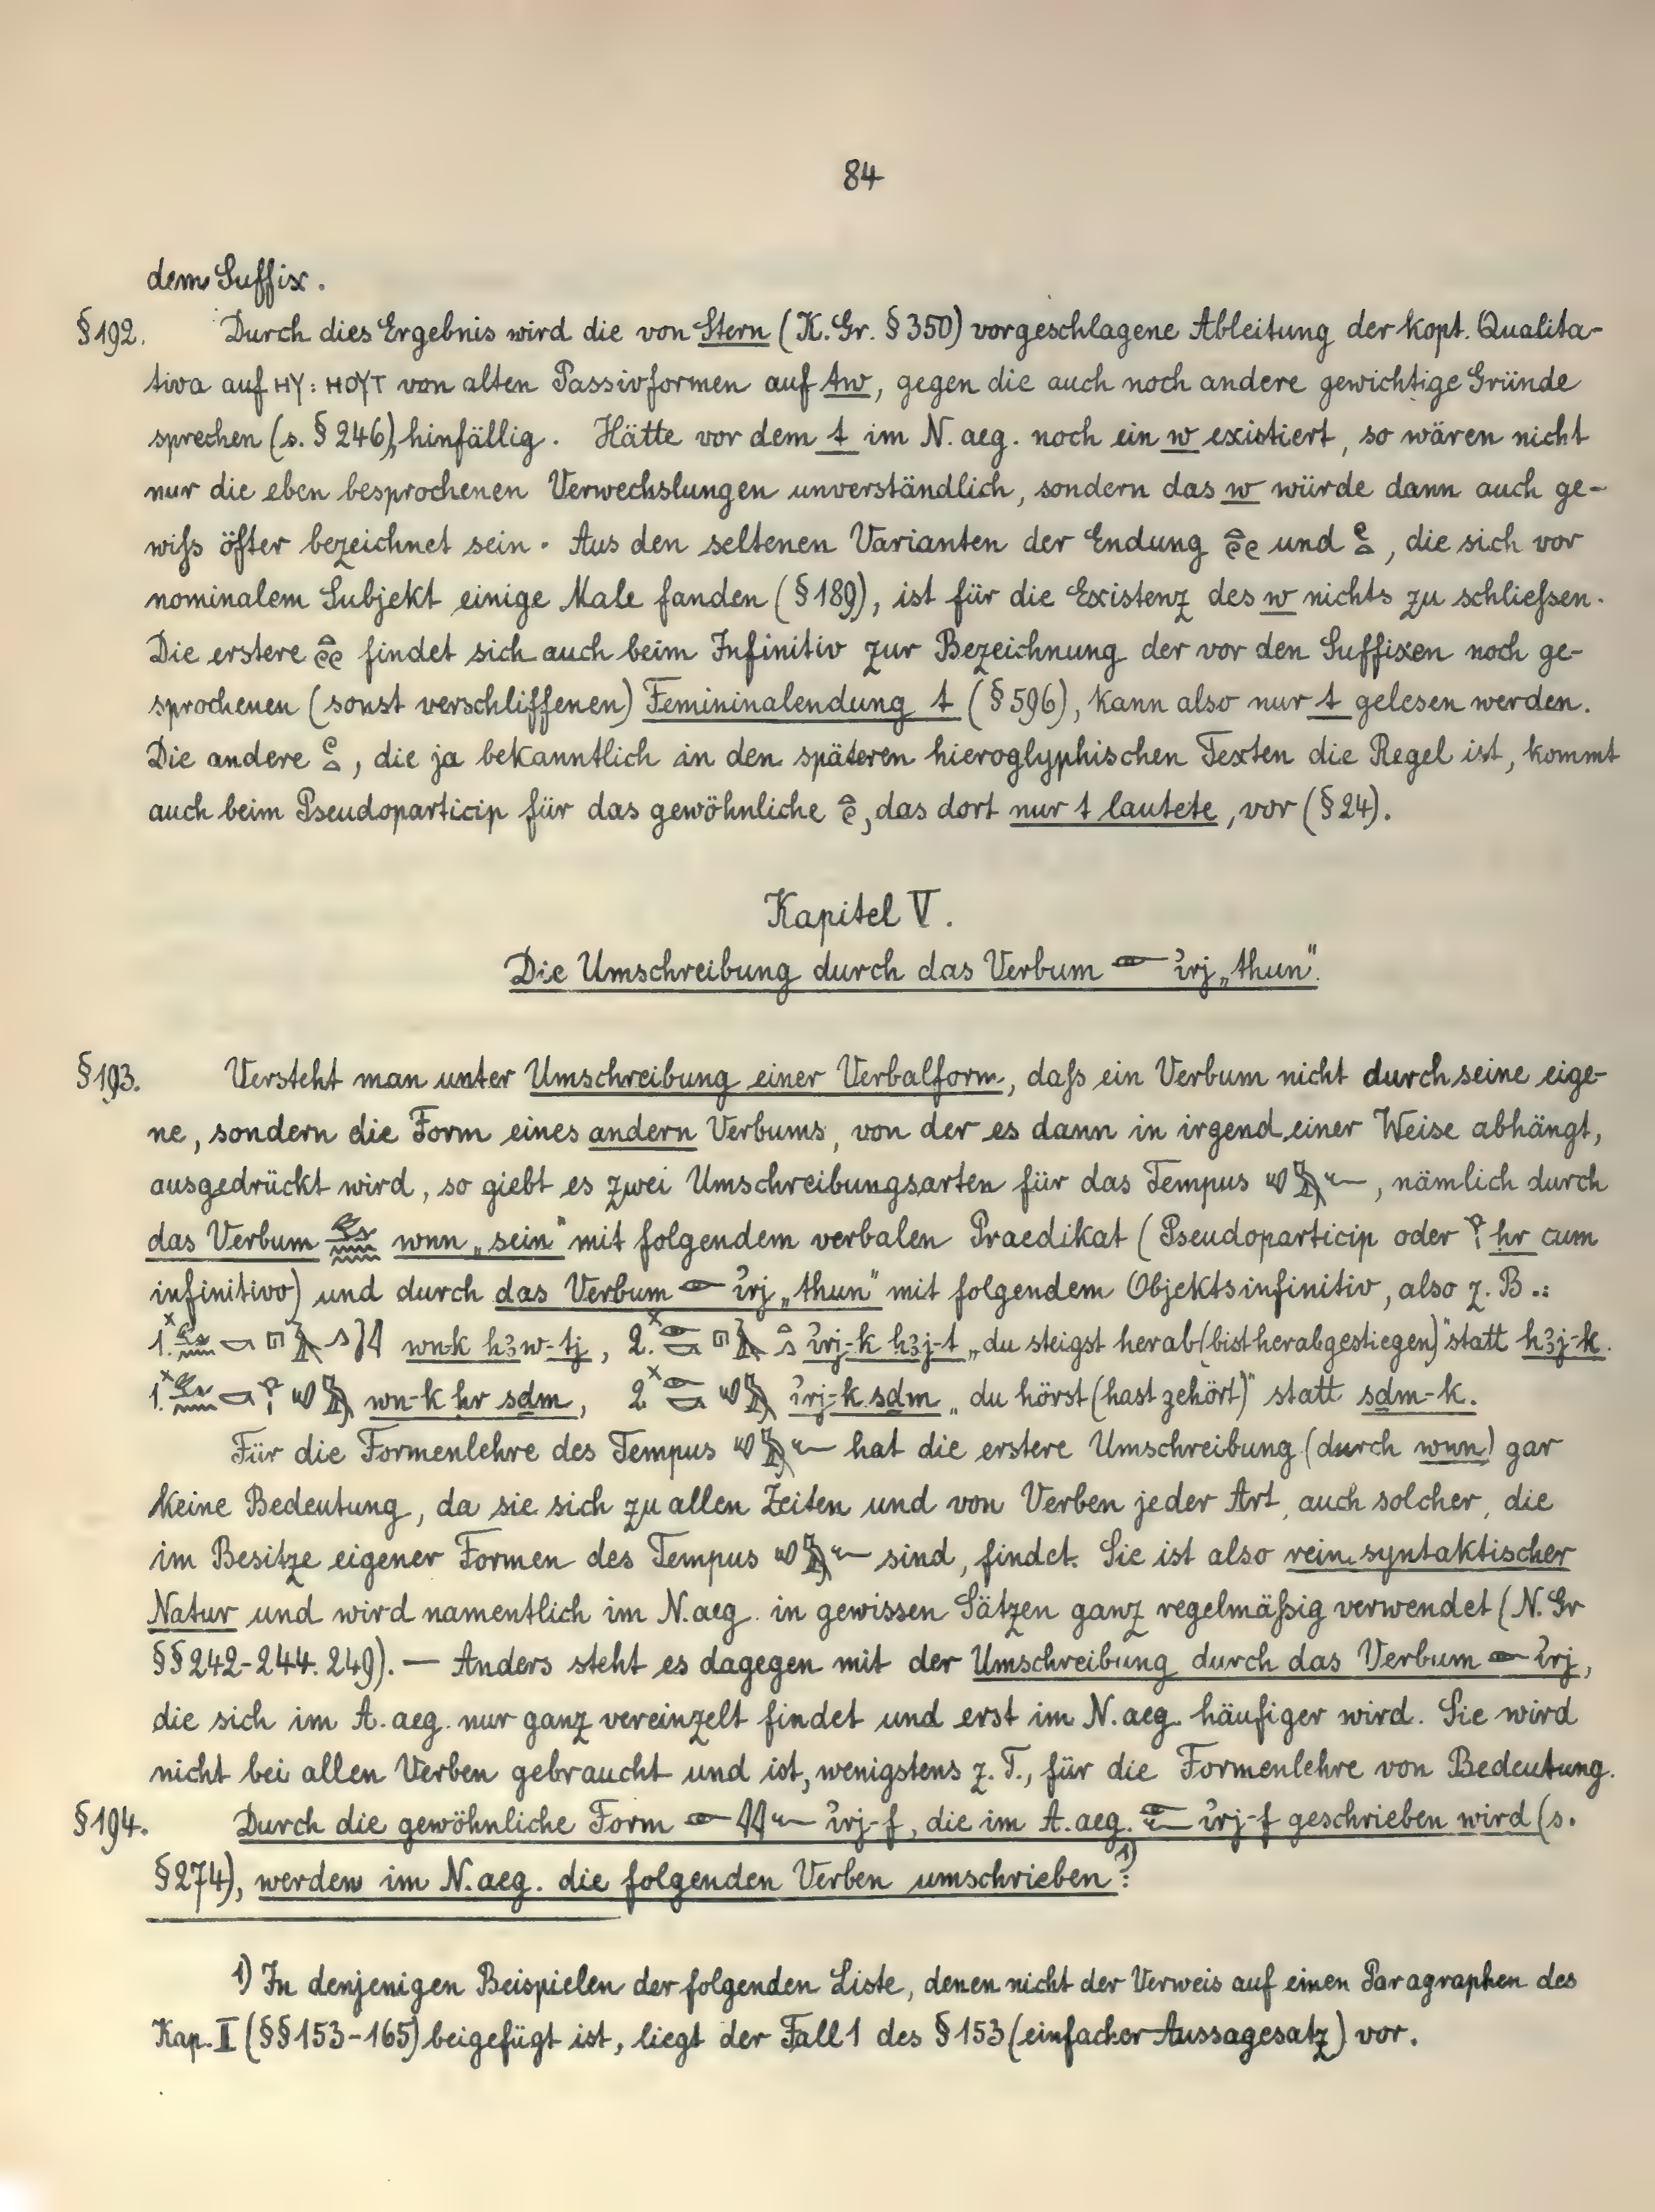 84
dem Suffix.
§192. Durch dies Ergebnis wird die von Stern (K. Gr. §350) vorgeschlagene Ableitung der kopt. Qualita-
tiva auf ⲏⲩ: ⲏⲟⲩⲧ von alten Passivformen auf tw, gegen die auch noch andere gewichtige Gründe
sprechen (s. §246), hinfällig. Hätte vor dem t im N. aeg. noch ein w existiert, so wären nicht
nur die eben besprochenen Verwechslungen unverständlich, sondern das w würde dann auch ge-
wiſs öfter bezeichnet sein. Aus den seltenen Varianten der Endung und , die sich vor
nominalem Subjekt einige Male fanden (§189), ist für die Existenz des w nichts zu schlieſsen.
Die erstere findet sich auch beim Infinitiv zur Bezeichnung der vor den Suffixen noch ge-
sprochenen (sonst verschliffenen) Femininalendung t (§596), kann also nur t gelesen werden.
Die andere , die ja bekanntlich in den späteren hieroglyphischen Texten die Regel ist, kommt
auch beim Pseudoparticip für das gewöhnliche , das dort nur t lautete, vor (§24).
Kapitel V.
Die Umschreibung durch das Verbum 𓁹 ı͗rj „thun".
§193. Versteht man unter Umschreibung einer Verbalform, daſs ein Verbum nicht durch seine eige-
ne, sondern die Form eines andern Verbums, von der es dann in irgend einer Weise abhängt,
ausgedrückt wird, so giebt es zwei Umschreibungsarten für das Tempus 𓄔𓅓𓆑, nämlich durch
das Verbum 𓃹𓈖𓈖 wnn „sein" mit folgendem verbalen Praedikat (Pseudoparticip oder 𓁷𓏤 ḥr cum
infinitivo) und durch das Verbum 𓁹 ı͗rj „thun" mit folgendem Objektsinfinitiv, also z. B.:
1. wn-k hꜣw-tj, 2. ı͗rj-k hꜣj-t „du steigst herab (bist herabgestiegen)" statt hꜣj-k.
1. wn-k ḥr sḏm, 2. ı͗rj-k sḏm „du hörst (hast zehört)" statt sḏm-k.
Für die Formenlehre des Tempus 𓄔𓅓𓆑 hat die erstere Umschreibung (durch wnn) gar
keine Bedeutung, da sie sich zu allen Zeiten und von Verben jeder Art, auch solcher, die
im Besitze eigener Formen des Tempus 𓄔𓅓𓆑 sind, findet. Sie ist also rein syntaktischer
Natur und wird namentlich im N. aeg. in gewissen Sätzen ganz regelmäſsig verwendet (N. Gr
§§242-244. 249). — Anders steht es dagegen mit der Umschreibung durch das Verbum 𓁹 ı͗rj,
die sich im A. aeg. nur ganz vereinzelt findet und erst im N. aeg. häufiger wird. Sie wird
nicht bei allen Verben gebraucht und ist, wenigstens z. T., für die Formenlehre von Bedeutung.
§194. Durch die gewöhnliche Form 𓁹𓇋𓇋𓆑 ı͗rj-f, die im A. aeg. 𓁹𓆑 ı͗rj-f geschrieben wird (s.
§274), werden im N. aeg. die folgenden Verben umschrieben:¹⁾
1) In denjenigen Beispielen der folgenden Liste, denen nicht der Verweis auf einen Paragraphen des
Kap. II (§§153-165) beigefügt ist, liegt der Fall 1 des §153 (einfacher Aussagesatz) vor.